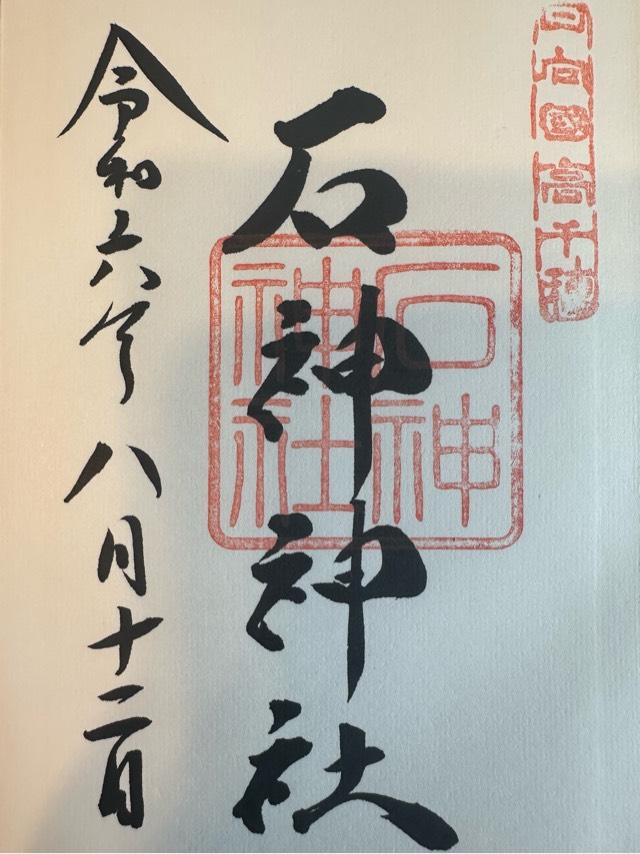 日向國高千穂
石神神社
石神
神社
令和六年八月十二日